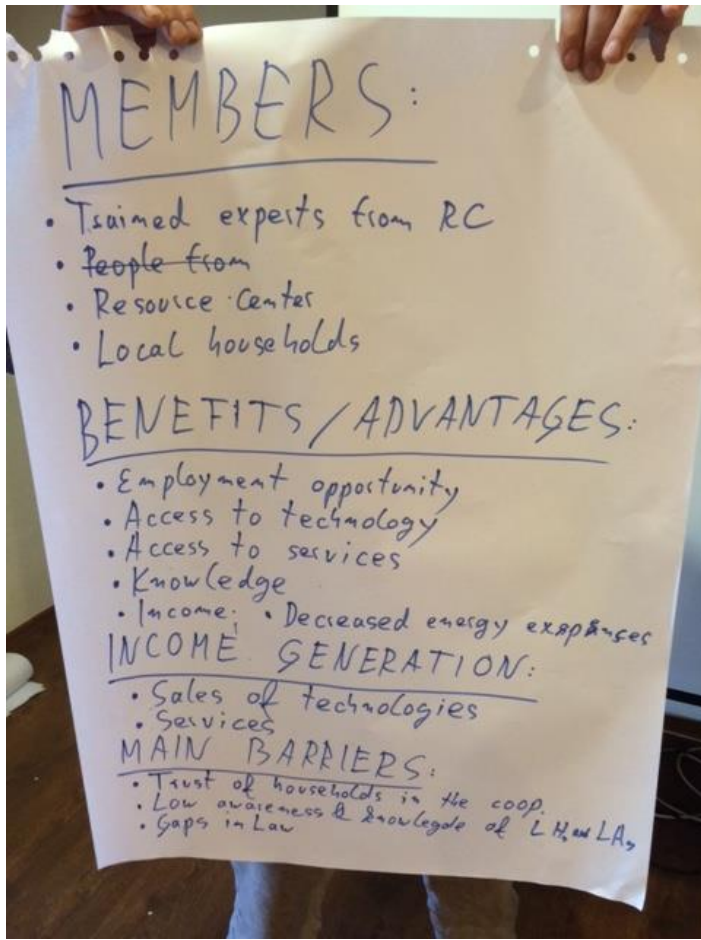 MEMBERS:
• Trained experts from RC
• People from
• Resource Center
• Local households
BENEFITS/ADVANTAGES:
• Employment opportunity
• Access to technology
• Access to services
• Knowledge
• Income; • Decreased energy
INCOME GENERATION:
• Sales of technologies
• Services
MAIN BARRIERS:
• Trust of households in the coop.
• Low awareness & knowlegde of LHs and LAs
• Gaps in Law